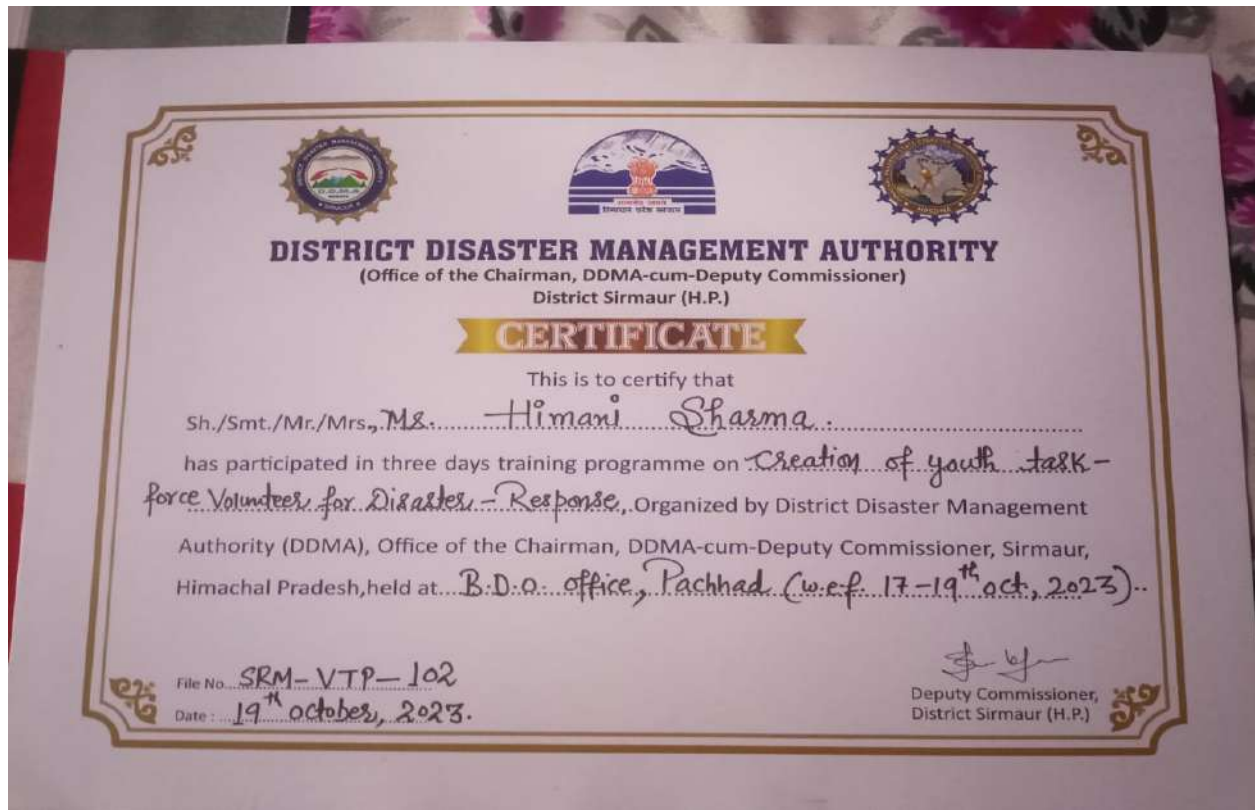 DISTRICT DISASTER MANAGEMENT AUTHORITY
D.D.M.A
सत्यमेव जयते
हिमाचल प्रदेश सरकार
HPSDMA
DISTRICT DISASTER MANAGEMENT AUTHORITY
(Office of the Chairman, DDMA-cum-Deputy Commissioner)
District Sirmaur (H.P.)
CERTIFICATE
This is to certify that
Sh./Smt./Mr./Mrs., Ms. Himani Sharma.
has participated in three days training programme on Creation of youth task-
force Volunteer for Disaster - Response, Organized by District Disaster Management
Authority (DDMA), Office of the Chairman, DDMA-cum-Deputy Commissioner, Sirmaur,
Himachal Pradesh,held at B.D.O. office, Pachhad (w.e.f. 17-19th oct., 2023)
File No. SRM-VTP-102
Date : 19th october, 2023.
Deputy Commissioner,
District Sirmaur (H.P.)